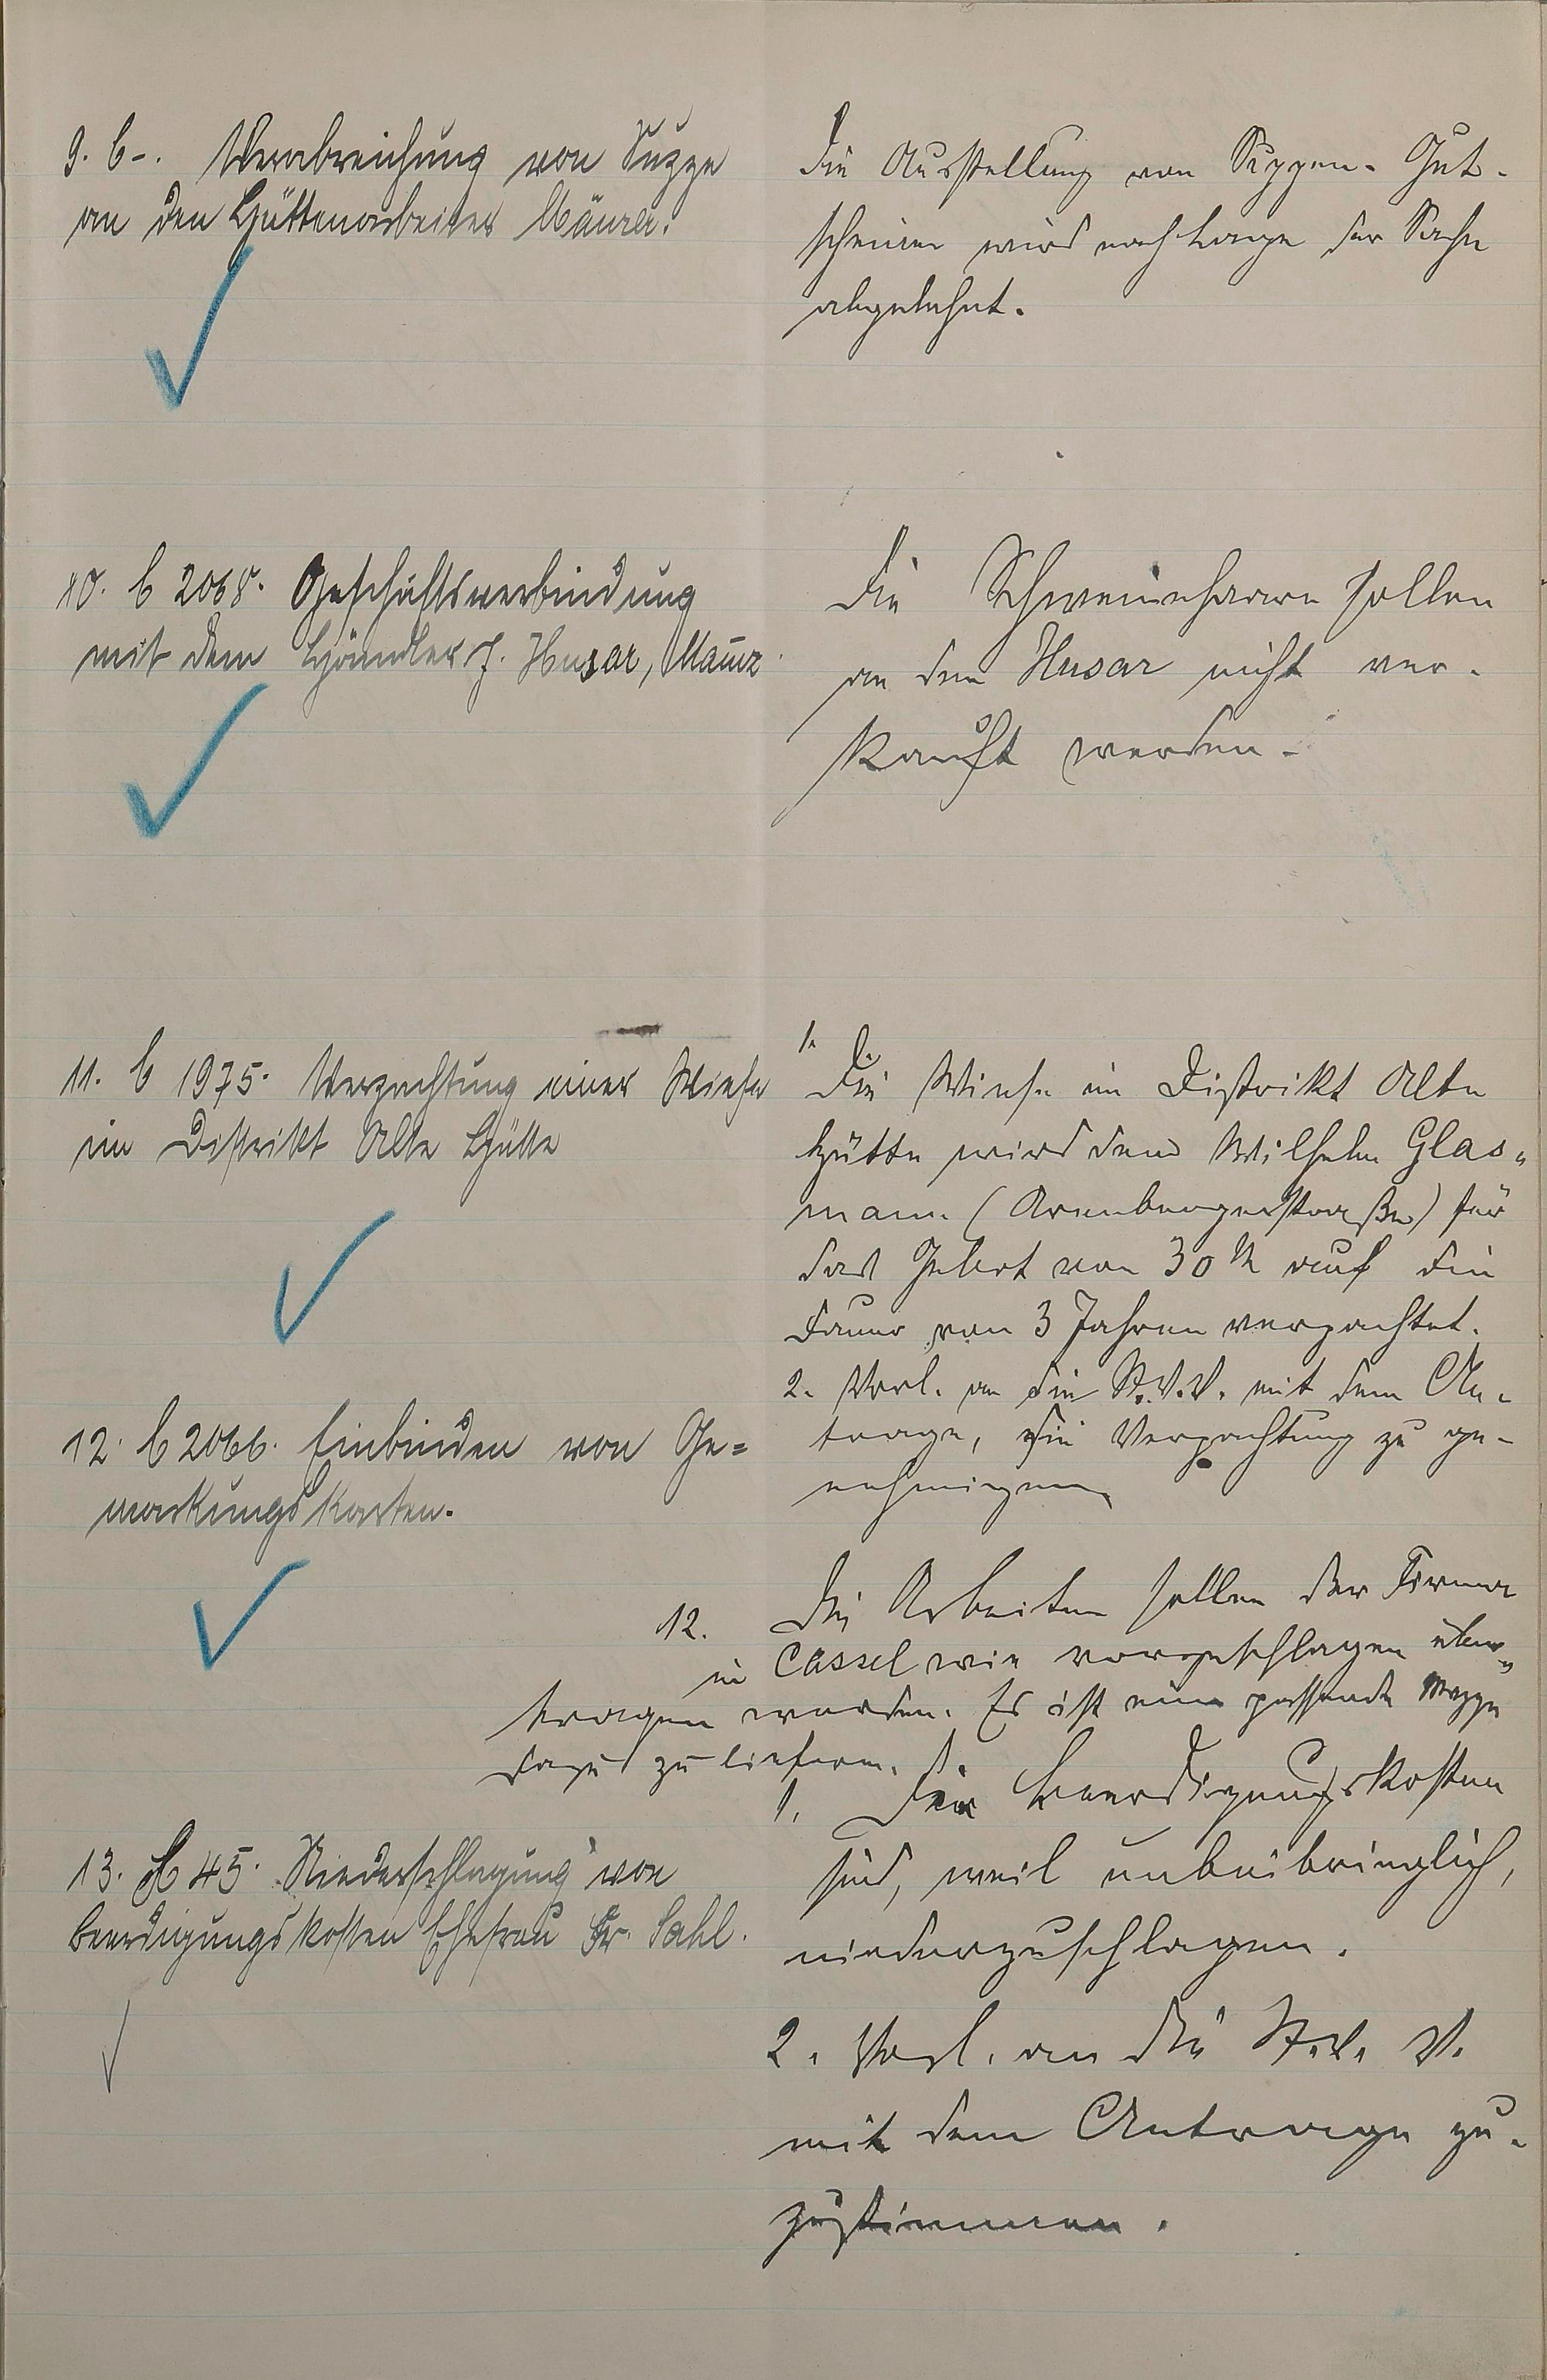 9. C -. Verabreichung von Suppe
an den Hüttenarbeiter Mäurer.
Die Ausstellung von Suppen-Gut-
scheinen wird nach Lage der Sache
abgelehnt.
10. C 2068. Geschäftsverbindung
mit dem Händler J. Husar, Mainz
Die Schweinehaare sollen
an den Husar nicht ver-
kauft werden.
11. C 1975. Verpachtung einer Wiese
im Distrikt Alte Hütte
1. Die Wiese im Distrikt Alte
Hütte wird dem Wilhelm Glas-
mann (Arenbergerstraße) für
das Gebot von 30 M auf die
Dauer von 3 Jahren verpachtet.
2. Vorl. an die St.V.V. mit dem An-
trage, die Verpachtung zu ge-
nehmigen
12. C 2066. Einbinden von Ge=
markungskarten.
12. Die Arbeiten sollen der Firma
in Cassel wie vorgeschlagen über-
tragen werden. Es ist eine passende Mappe
dazu zu liefern.
13. 45. Niederschlagung von
Beerdigungskosten Ehefrau Fr. Sahl.
1. Die Beerdigungskosten
sind, weil unbeibringlich,
niederzuschlagen.
2. Vorl. an die St.V.V.
mit dem Antrage zu-
zustimmen.